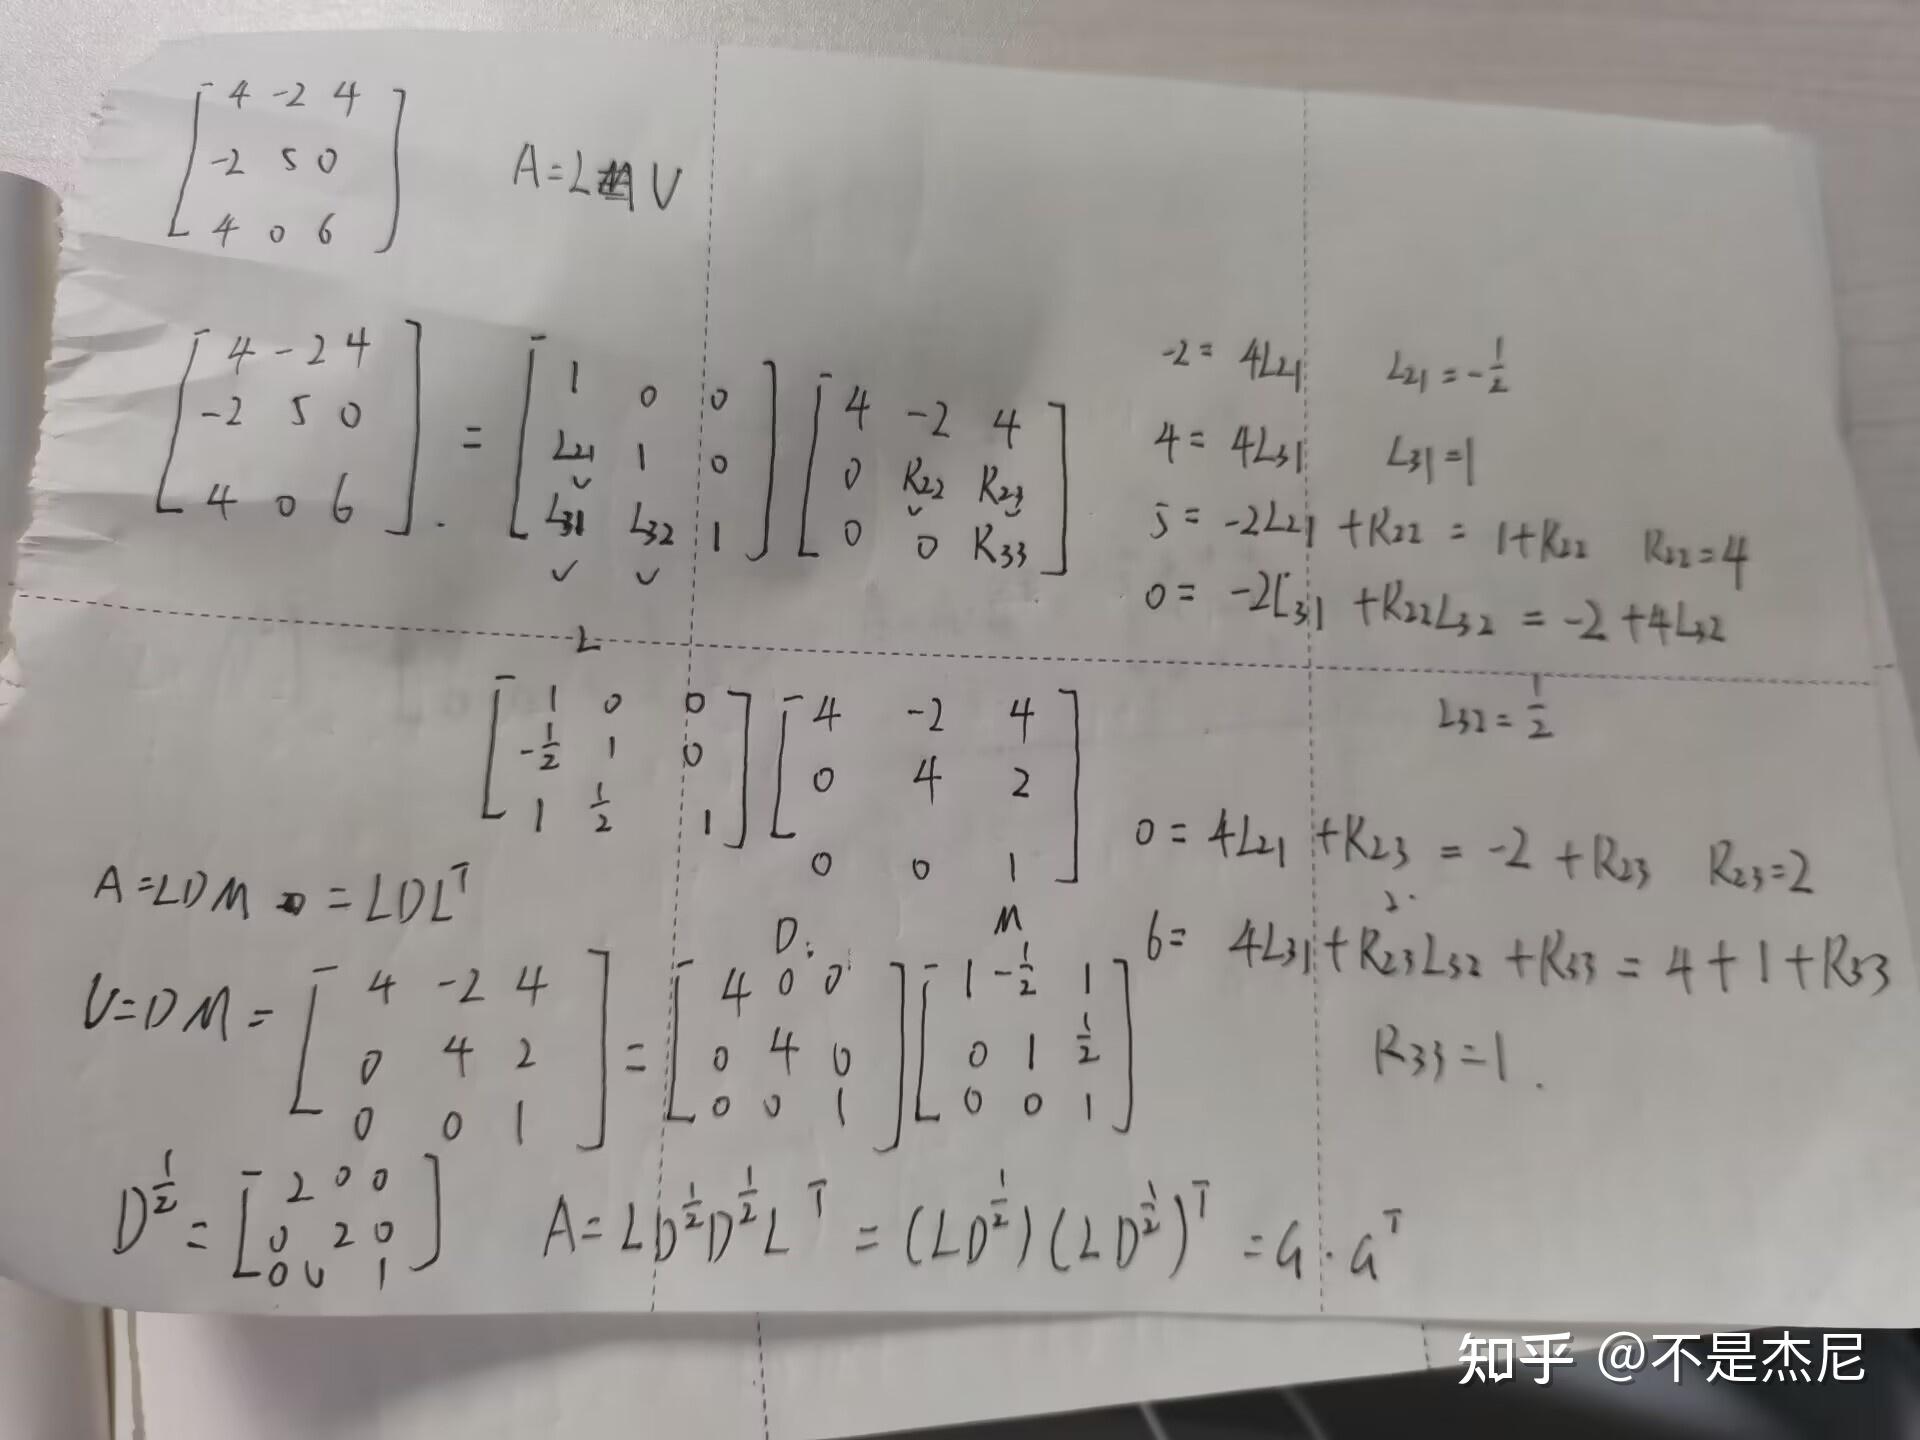 [4 -2 4
-2 5 0
4 0 6]
A=LU
[4 -2 4
-2 5 0
4 0 6] = [1 0 0
L21 1 0
L31 L32 1] [4 -2 4
0 R22 R23
0 0 R33]
-2 = 4L21 L21 = -1/2
4 = 4L31 L31 = 1
5 = -2L21 + R22 = 1+R22 R22 = 4
0 = -2L31 + R22L32 = -2 + 4L32
L32 = 1/2
L
[1 0 0
-1/2 1 0
1 1/2 1] [4 -2 4
0 4 2
0 0 1]
0 = 4L21 + R23 = -2 + R23 R23 = 2
6 = 4L31 + R23L32 + R33 = 4 + 1 + R33
2.
R33 = 1.
A = LDM = LDL^T
D: M
U = DM = [4 -2 4
0 4 2
0 0 1] = [4 0 0
0 4 0
0 0 1] [1 -1/2 1
0 1 1/2
0 0 1]
D^1/2 = [2 0 0
0 2 0
0 0 1]
A = LD^1/2 D^1/2 L^T = (LD^1/2)(LD^1/2)^T = G · G^T
知乎 @不是杰尼